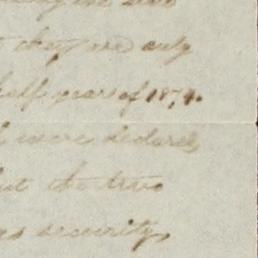 they are only
half years of 1874.
were declared
but the two
as security,